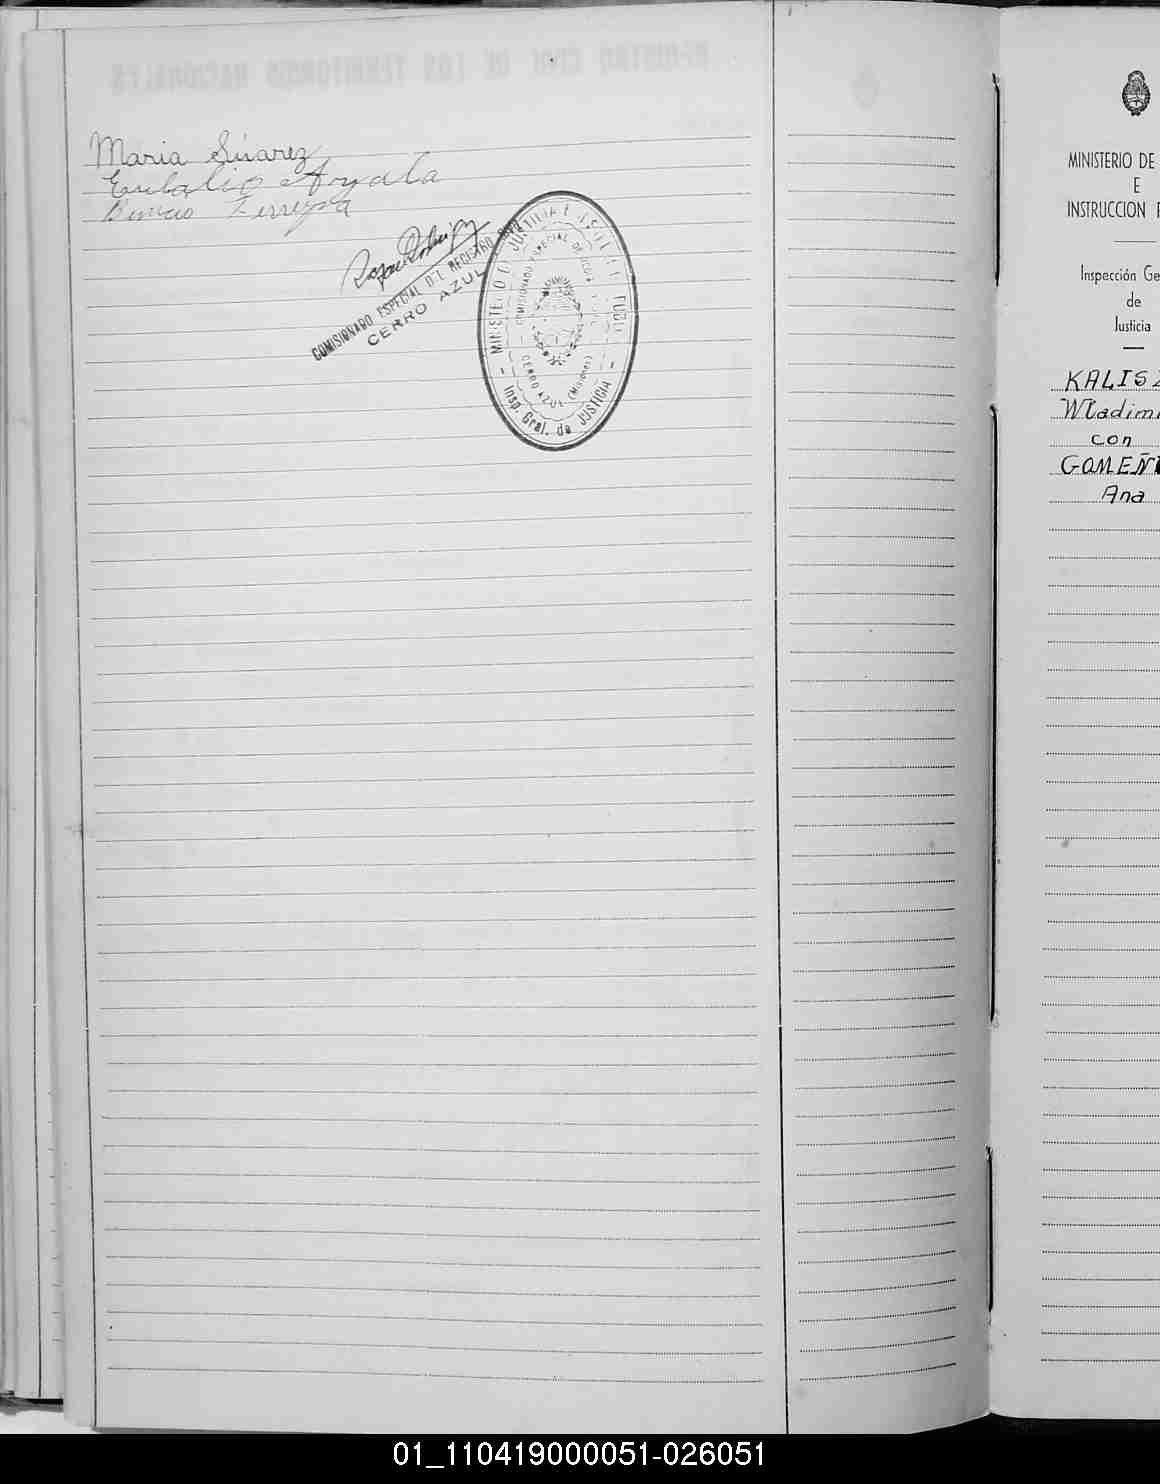 Maria Súarez
Eulalio Ayala
Ferreyra
COMISIONADO ESPECIAL DEL REGISTRO
CERRO AZUL
MINISTERIO DE JUSTICIA E
COMISIONADO ESPECIAL DE
CERRO AZUL (Misiones)
Insp. Gral. de JUSTICIA
MINISTERIO DE
E
INSTRUCCION P
Inspección Ge
de
Justicia
KALISZ
Wladimi
con
GOMEÑU
Ana
01_110419000051-026051